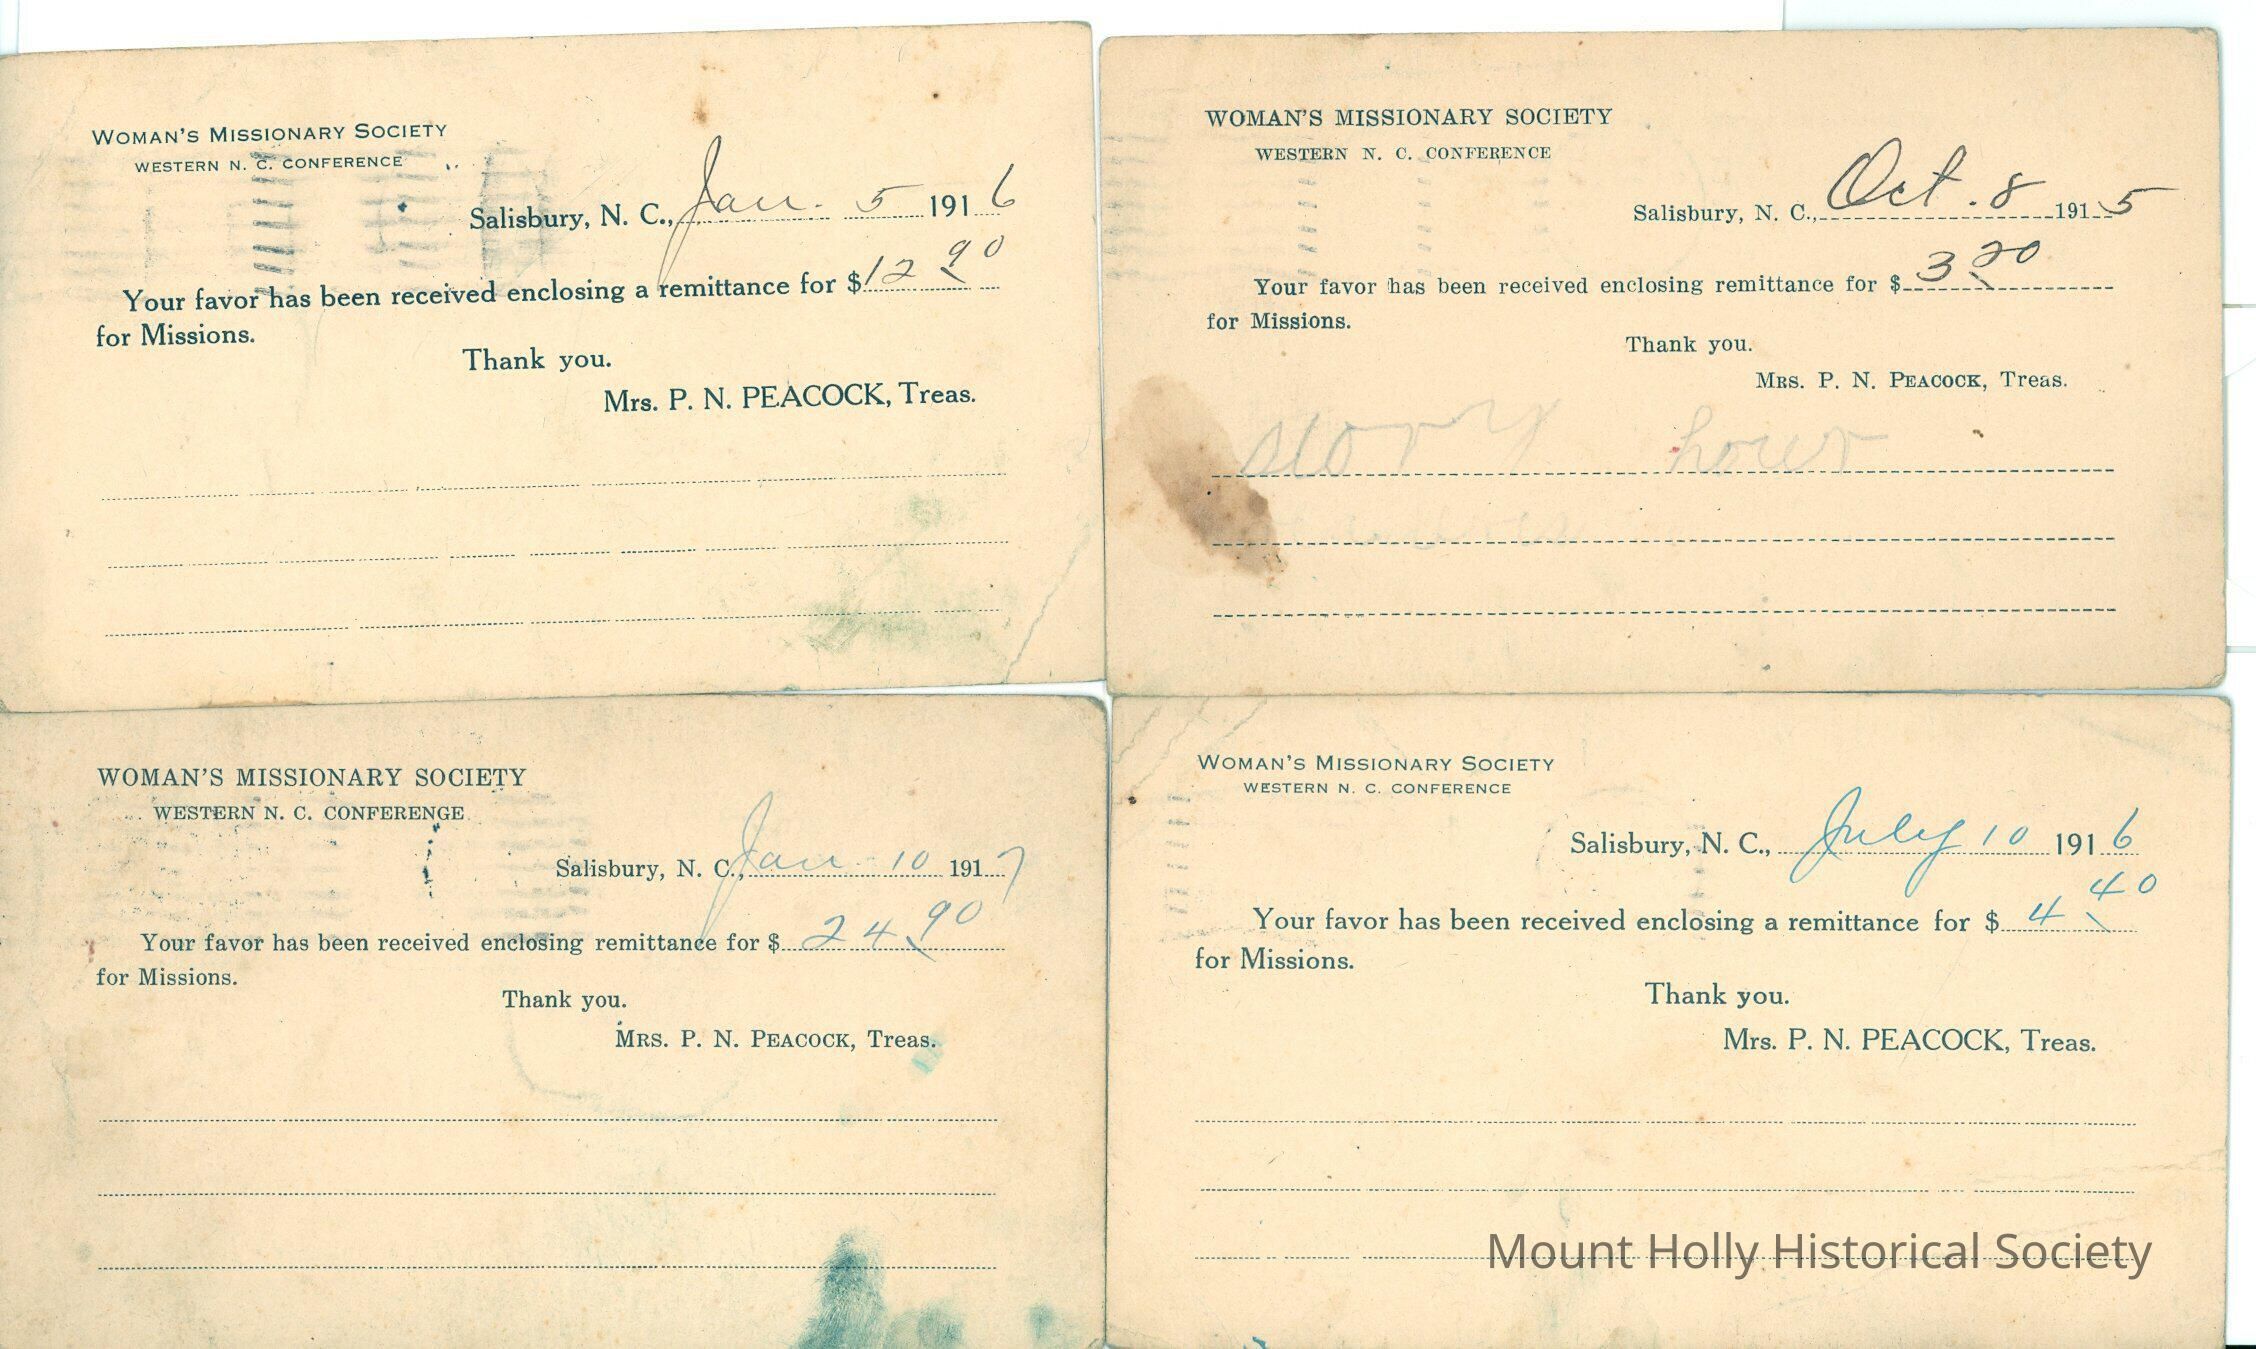 WOMAN'S MISSIONARY SOCIETY
WESTERN N. C. CONFERENCE
Salisbury, N. C., Jan. 5 1916
Your favor has been received enclosing a remittance for $12 90
for Missions.
Thank you.
Mrs. P. N. PEACOCK, Treas.
WOMAN'S MISSIONARY SOCIETY
WESTERN N. C. CONFERENCE
Salisbury, N. C., Oct. 8 1915
Your favor has been received enclosing remittance for $3 20
for Missions.
Thank you.
MRS. P. N. PEACOCK, Treas.
story hour
WOMAN'S MISSIONARY SOCIETY
WESTERN N. C. CONFERENGE
Salisbury, N. C., Jan. 10 1917
Your favor has been received enclosing remittance for $24 90
for Missions.
Thank you.
MRS. P. N. PEACOCK, Treas.
WOMAN'S MISSIONARY SOCIETY
WESTERN N. C. CONFERENCE
Salisbury, N. C., July 10 1916
Your favor has been received enclosing a remittance for $4 40
for Missions.
Thank you.
Mrs. P. N. PEACOCK, Treas.
Mount Holly Historical Society